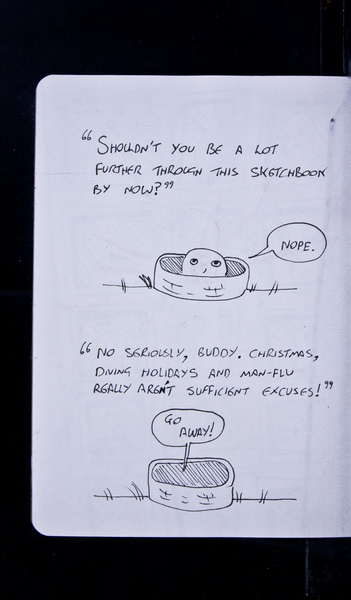 "SHOULDN'T YOU BE A LOT
FURTHER THROUGH THIS SKETCHBOOK
BY NOW?"
NOPE.
"NO SERIOUSLY, BUDDY. CHRISTMAS,
DIVING HOLIDAYS AND MAN-FLU
REALLY AREN'T SUFFICIENT EXCUSES!"
GO
AWAY!